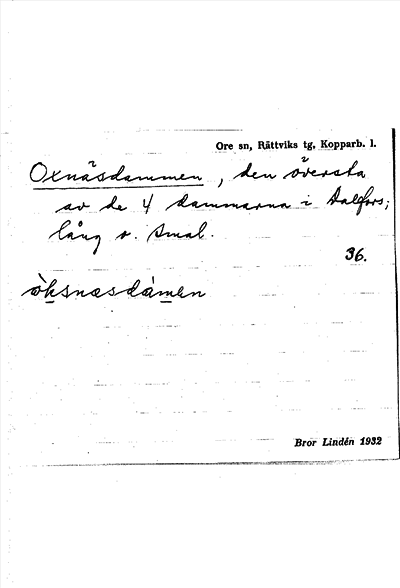 Ore sn, Rättviks tg, Kopparb. l.
Oxnäsdammen, den översta
av de 4 dammarna i Dalfors;
lång o. smal.
36.
òksnæsdàmen
Bror Lindén 1932